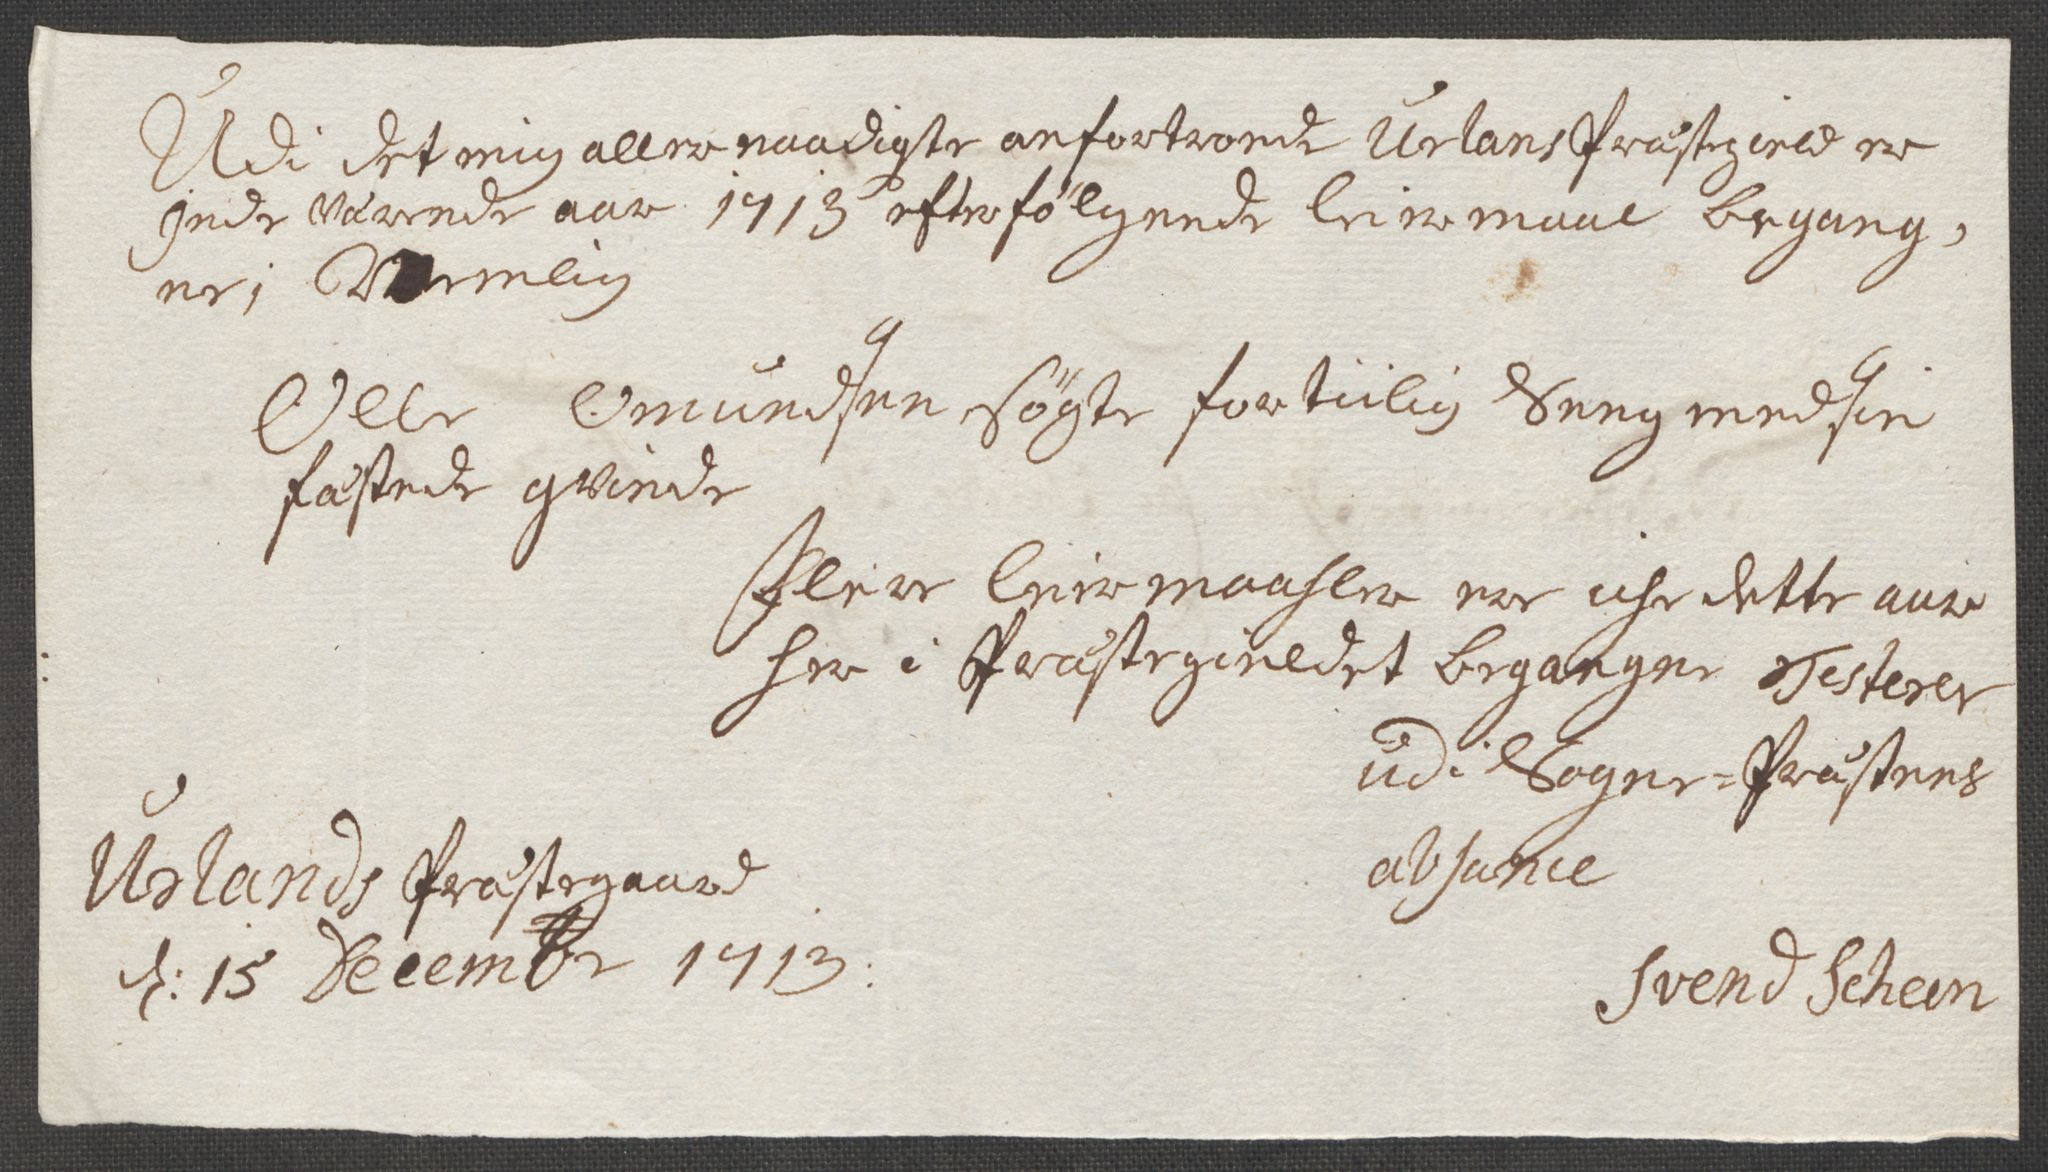 Udi det mig allernaadigste anfortroede Urlans Præstegield er
inde værende aar 1713 efterfølgende leiermaal begang,
ne, Nemlig
Olle Omundsen søgte fortiilig Seng med sin
fæstede qvinde
Flere leiermaahler ere iche dette aar
her i Præstegieldet begangne Testerer
udi Sogne-Præstens
absence
Urlands Præstegaard
d: 15 Decembr 1713:
Svend Scheen